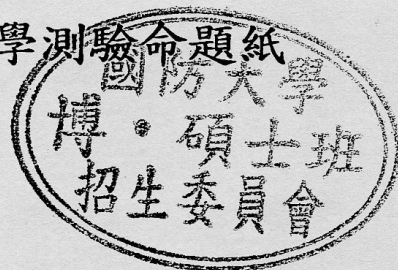 學測驗命題紙
國防大學
博·碩士班
招生委員會